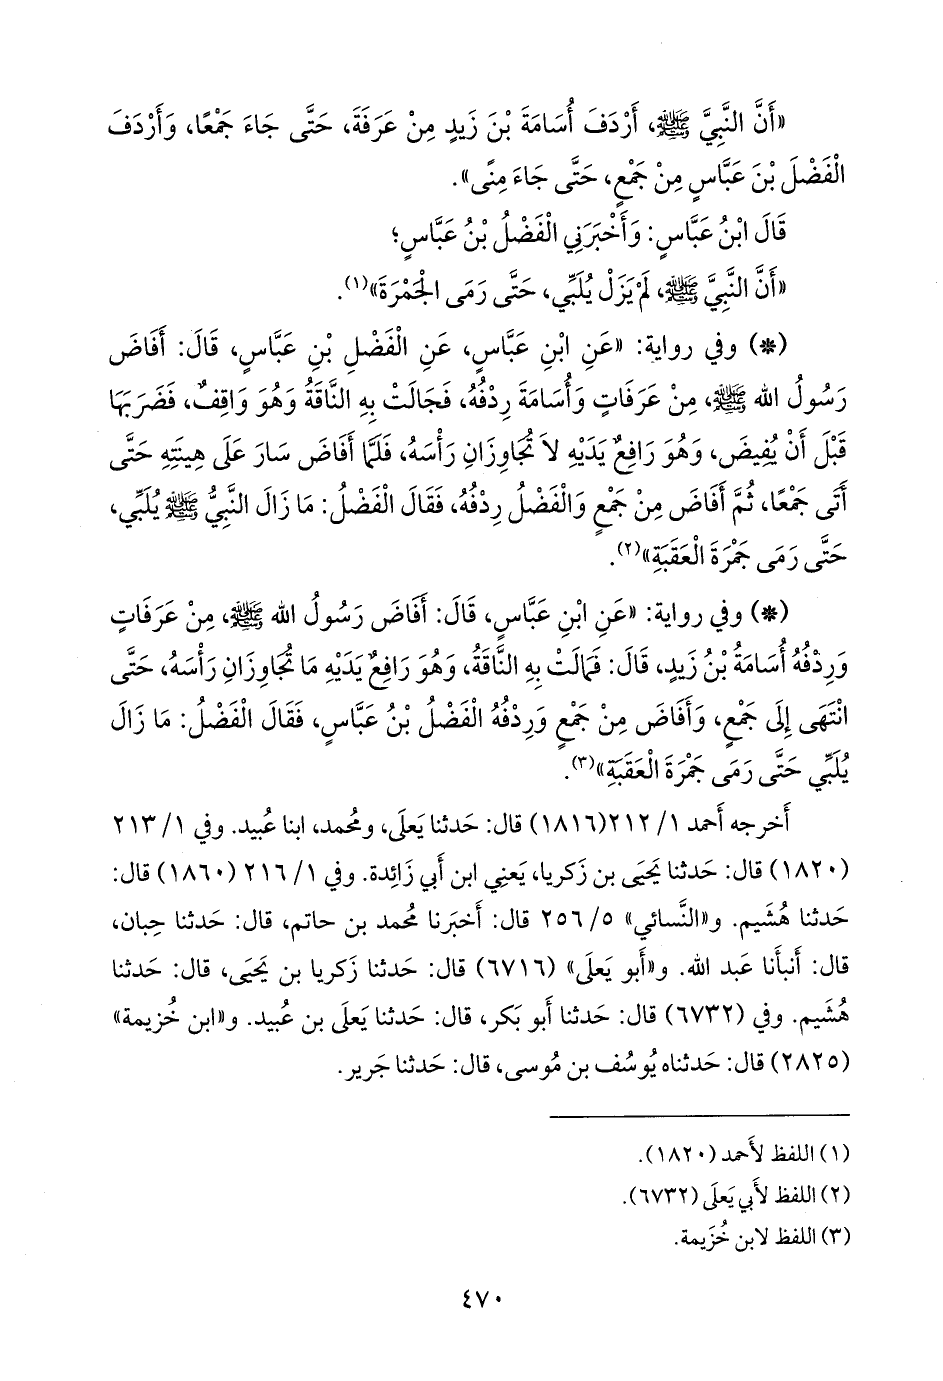 «أَنَّ النَّبِيَّ ﷺ، أَرْدَفَ أُسَامَةَ بْنَ زَيدٍ مِنْ عَرَفَةَ، حَتَّى جَاءَ جَمْعًا، وَأَرْدَفَ
الْفَضْلَ بْنَ عَبَّاسٍ مِنْ جَمْعٍ، حَتَّى جَاءَ مِنًى».
قَالَ ابْنُ عَبَّاسٍ: وَأَخْبَرَنِي الْفَضْلُ بْنُ عَبَّاسٍ؛
«أَنَّ النَّبِيَّ ﷺ، لَمْ يَزَلْ يُلَبِّي، حَتَّى رَمَى الْجَمْرَةَ»(١).
(*) وفي رواية: «عَنِ ابْنِ عَبَّاسٍ، عَنِ الْفَضْلِ بْنِ عَبَّاسٍ، قَالَ: أَفَاضَ
رَسُولُ الله ﷺ، مِنْ عَرَفَاتٍ وَأُسَامَةَ رِدْفُهُ، فَجَالَتْ بِهِ النَّاقَةُ وَهُوَ وَاقِفٌ، فَضَرَبَهَا
قَبْلَ أَنْ يُفِيضَ، وَهُوَ رَافِعٌ يَدَيْهِ لاَ تُجَاوِزَانِ رَأْسَهُ، فَلَمَّا أَفَاضَ سَارَ عَلَى هِينَتِهِ حَتَّى
أَتَى جَمْعًا، ثُمَّ أَفَاضَ مِنْ جَمْعٍ وَالْفَضْلُ رِدْفُهُ، فَقَالَ الْفَضْلُ: مَا زَالَ النَّبِيُّ ﷺ يُلَبِّي،
حَتَّى رَمَى جَمْرَةَ الْعَقَبَةِ»(٢).
(*) وفي رواية: «عَنِ ابْنِ عَبَّاسٍ، قَالَ: أَفَاضَ رَسُولُ الله ﷺ، مِنْ عَرَفَاتٍ
وَرِدْفُهُ أُسَامَةُ بْنُ زَيدٍ، قَالَ: فَمَالَتْ بِهِ النَّاقَةُ، وَهُوَ رَافِعٌ يَدَيْهِ مَا تُجَاوِزَانِ رَأْسَهُ، حَتَّى
انْتَهَى إِلَى جَمْعٍ، وَأَفَاضَ مِنْ جَمْعٍ وَرِدْفُهُ الْفَضْلُ بْنُ عَبَّاسٍ، فَقَالَ الْفَضْلُ: مَا زَالَ
يُلَبِّي حَتَّى رَمَى جَمْرَةَ الْعَقَبَةِ»(٣).
أَخرجه أَحمد ١/ ٢١٢(١٨١٦) قال: حَدثنا يَعلَى، ومُحمد، ابنا عُبيد. وفي ١/ ٢١٣
(١٨٢٠) قال: حَدثنا يَحيَى بن زكريا، يَعني ابن أَبي زَائِدة. وفي ١/ ٢١٦ (١٨٦٠) قال:
حَدثنا هُشَيم. و«النَّسائي» ٥/ ٢٥٦ قال: أَخبَرنا مُحمد بن حاتم، قال: حَدثنا حِبان،
قال: أَنبأَنا عَبد الله. و«أَبو يَعلَى» (٦٧١٦) قال: حَدثنا زَكريا بن يَحيَى، قال: حَدثنا
هُشَيم. وفي (٦٧٣٢) قال: حَدثنا أَبو بَكر، قال: حَدثنا يَعلَى بن عُبيد. و«ابن خُزيمة»
(٢٨٢٥) قال: حَدثناه يُوسُف بن مُوسى، قال: حَدثنا جَرير.
(١) اللفظ لأَحمد (١٨٢٠).
(٢) اللفظ لأَبي يَعلَى (٦٧٣٢).
(٣) اللفظ لابن خُزَيمة.
٤٧٠